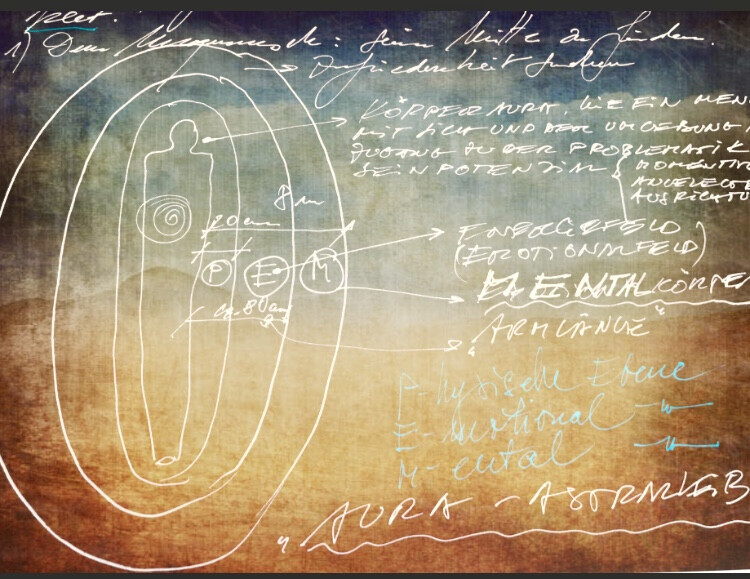 1) Dem : seine Mitte zu finden.
→ Zufriedenheit finden
KÖRPERAURA, WIE EIN MEN
MIT SICH UND DER UMGEBUNG,
ZUGANG ZU DER PROBLEMATIK
SEIN POTENZIAL
MOMENTAN
AUSRICHTU
8m
20cm
ENERGIEFELD
(EMOTIONALFELD)
P E M
MENTALKÖRPE
ca. 80cm
"ARMLÄNGE"
P-hysische Ebene
E-motional —"—
M-ental —"—
"AURA - ASTRALLEIB